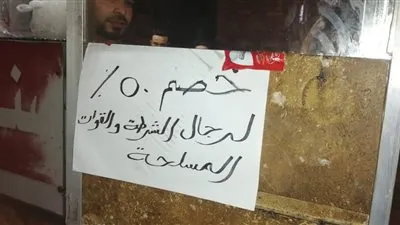 خصم ٥٠٪
لرجال الشرطة والقوات
المسلحة